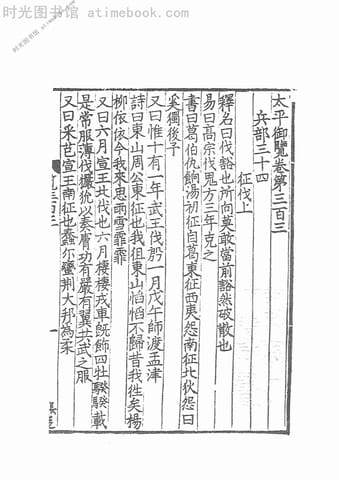 时光图书馆 - atimebook.com
时光图书馆 www.atimebook.com
太平御覽卷第三百三
兵部三十四
征伐上
釋名曰伐豁也所向莫敢當前豁然破散也
易曰高宗伐鬼方三年克之
書曰葛伯仇餉湯初征自葛東征西夷怨南征北狄怨曰
奚獨後予
又曰惟十有一年武王伐殷一月戊午師渡孟津
詩曰東山周公東征也我徂東山慆慆不歸昔我往矣楊
柳依依今我來思雨雪霏霏
又曰六月宣王北伐也六月棲棲戎車旣飭四牡騤騤載
是常服薄伐玁狁以奏膚功有嚴有翼共武之服
又曰采芑宣王南征也蠢尔蠻荆大邦為讎
一